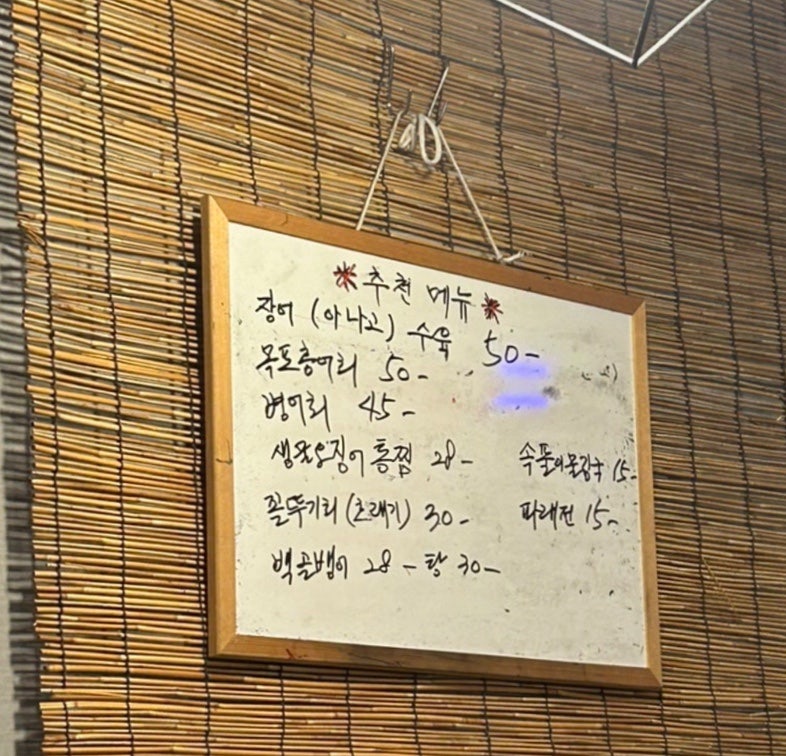 ※ 추천 메뉴 ※
장어 (아나고) 수육 50-
목포홍어회 50-
병어회 45-
생물오징어통찜 28-
꼴뚜기회(초래기) 30-
파래전 15-
백골뱅이 28- 탕 30-